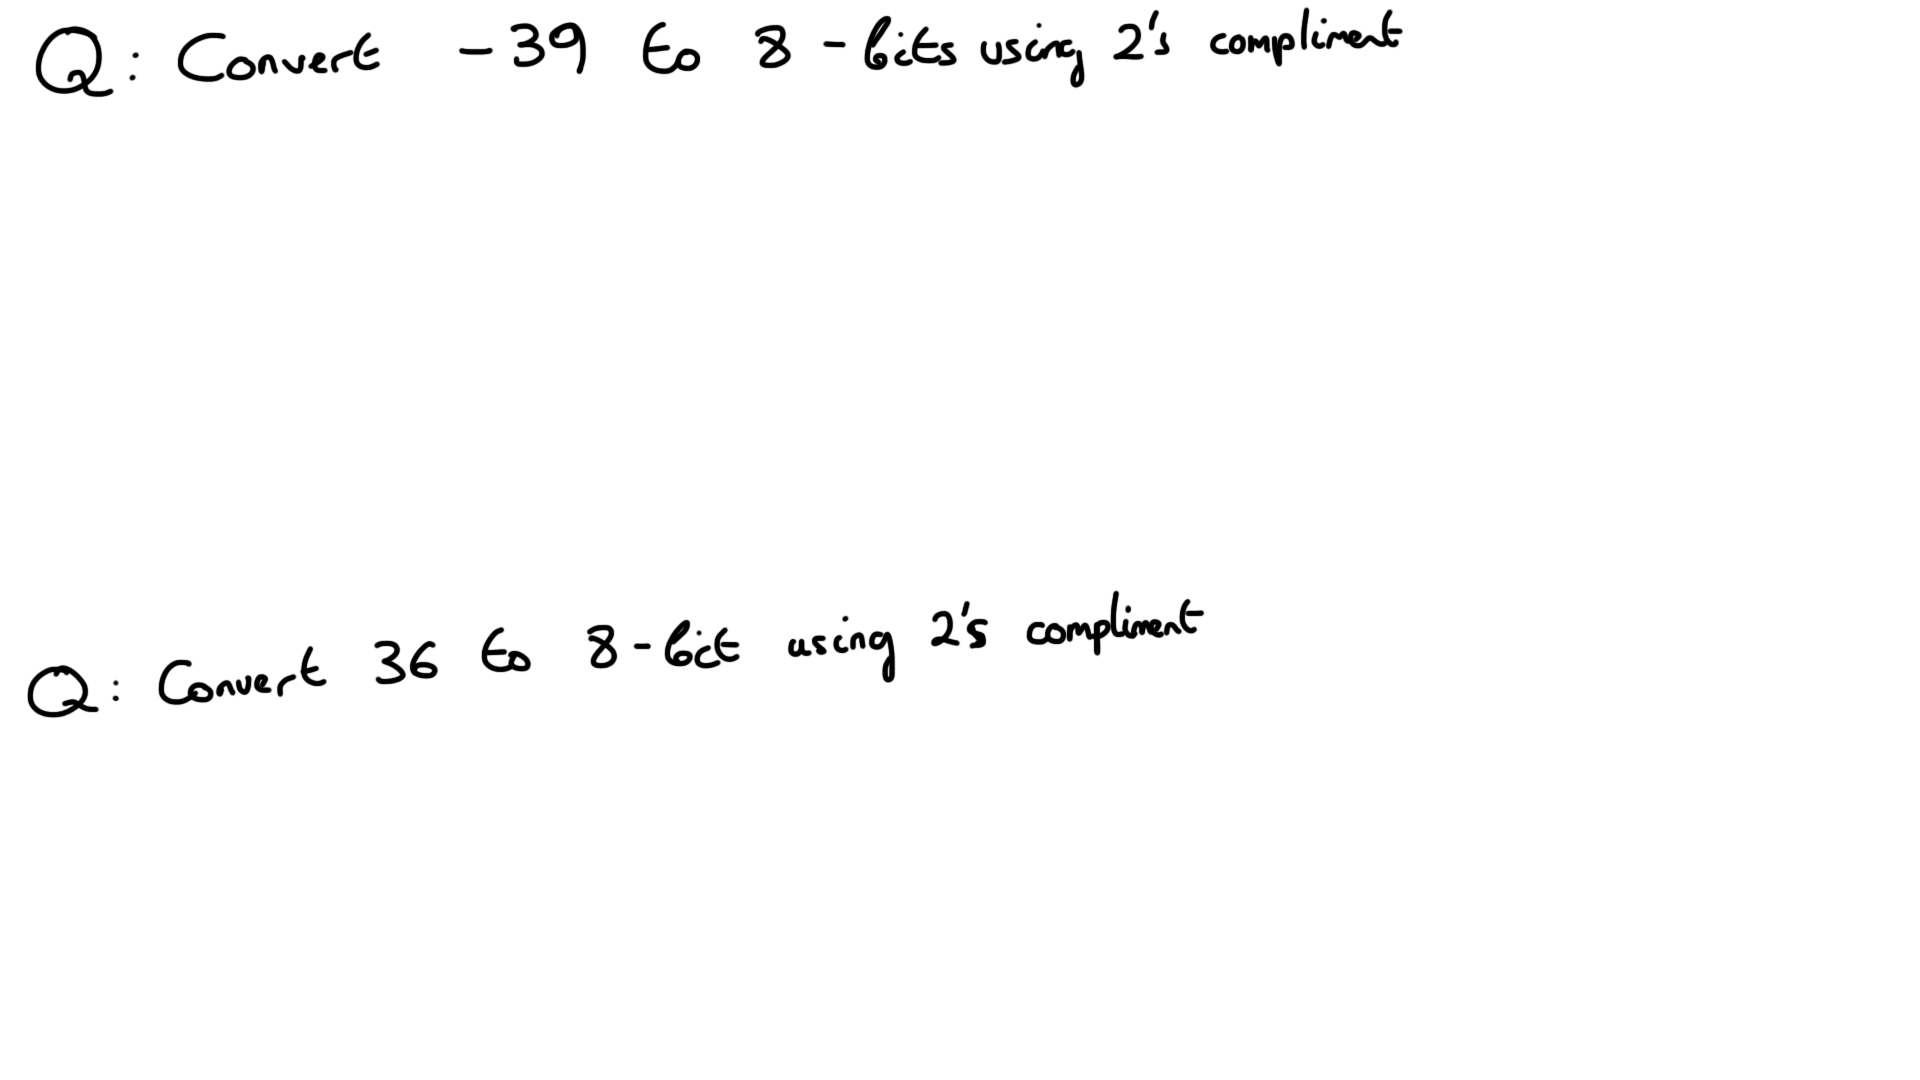 Q: Convert -39 to 8-bits using 2's compliment
Q: Convert 36 to 8-bit using 2's compliment